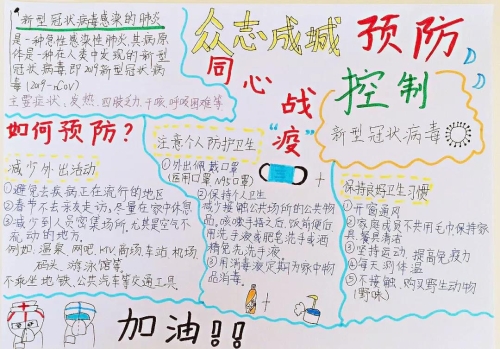 新型冠状病毒感染的肺炎
是一种急性感染性肺炎,其病原
体是一种在人类中发现的新型
冠状病毒,即2019新型冠状病
毒(2019-nCoV)
主要症状:发热、四肢乏力、干咳、呼吸困难等
众志成城
同心战“疫”
预防
控制
新型冠状病毒
如何预防?
减少外出活动
①避免去疾病正在流行的地区
②春节不去亲友走访,尽量在家中休息
③减少到人员密集场所,尤其是空气不
流动的地方.
例如:温泉、网吧、KTV、商场、车站、机场、
码头、游泳馆等.
不乘坐地铁、公共汽车等交通工具.
注意个人防护卫生
①外出佩戴口罩
(医用口罩 N95口罩)
②保持个人卫生
减少接触公共场所的公共物
品,咳嗽手捂之后,饭前便后
用洗手液或肥皂洗手或酒
精免洗洗手液
③用消毒液定期为家中物
品消毒.
保持良好卫生习惯
①开窗通风
②家庭成员不共用毛巾保持家
具餐具清洁
③坚持运动,提高免疫力
④每天测体温
⑤不接触、购买野生动物
(野味)
加油!!